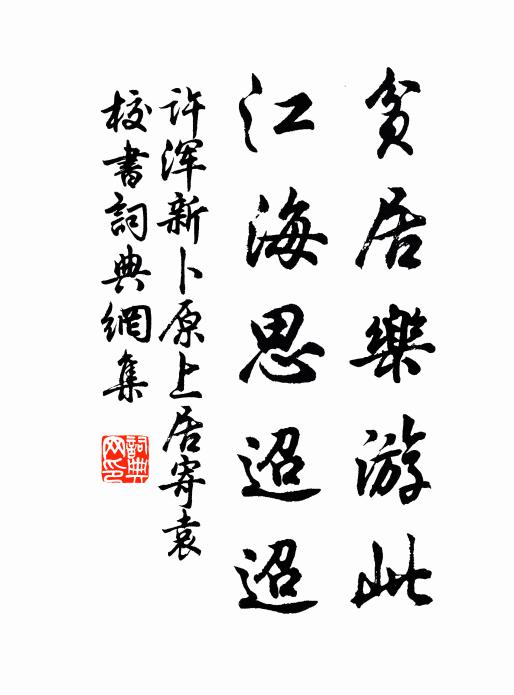 貧居樂游此
江海思迢迢
許渾新卜原上居寄袁
校書詞典網集
詞典网印